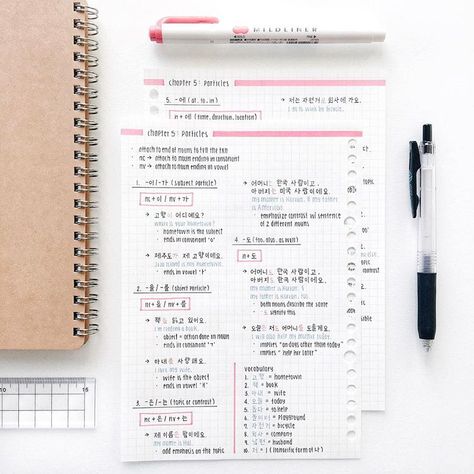 MILDLINER
chapter 5: Particles
5. -에 (at, to, in)
n + 에 (time, direction, location)
→ 저는 자전거로 회사에 가요.
I go to work by bicycle.
chapter 5: Particles
• attach to end of nouns to tell the
nc → attach to noun ending in consonant
nv → attach to noun ending in vowel
1. -이/-가 (subject particle)
nc + 이 / nv + 가
→ 고향이 어디예요?
where is your hometown?
hometown is the subject
ends in consonant "ㅇ"
→ 제주도가 제 고향이에요.
Jeju Island is my hometown.
ends in vowel
2. -을/-를 (object particle)
nc + 을 / nv + 를
→ 책을 읽고 있어요.
I'm reading a book.
object = action done on noun
ends in consonant "ㄱ"
→ 아내를 사랑해요.
I love my wife.
• wife is the object
ends in vowel "ㅐ"
3. -은/-는 (topic or contrast)
nc + 은 / nv + 는
→ 제 이름은
my name is
• add emphasis on the topic
→ 어머니는 한국 사람이고,
아버지는 미국 사람이에요.
my mother is Korean, & my father
is American.
• emphasize contrast w/ sentence
of 2 different nouns
4. -도 (too, also, as well)
n + 도
→ 어머니도 한국 사람이고,
아버지도 한국 사람이에요.
my mother is Korean, &
my father is Korean, too.
• both nouns describe the same
& signify this
→ 오늘 저도 어머니를 도울게요.
I will also help my mother today.
• implies "on does other than today"
• implies "help her later"
vocabulary
1. 고향 = hometown
2. 책 = book
3. 아내 = wife
4. 오늘 = today
5. 돕다 = to help
6. 놀이터 = playground
7. 자전거 = bicycle
8. 회사 = company
9. 남편 = husband
10. 저 = I (honorific form of 나)